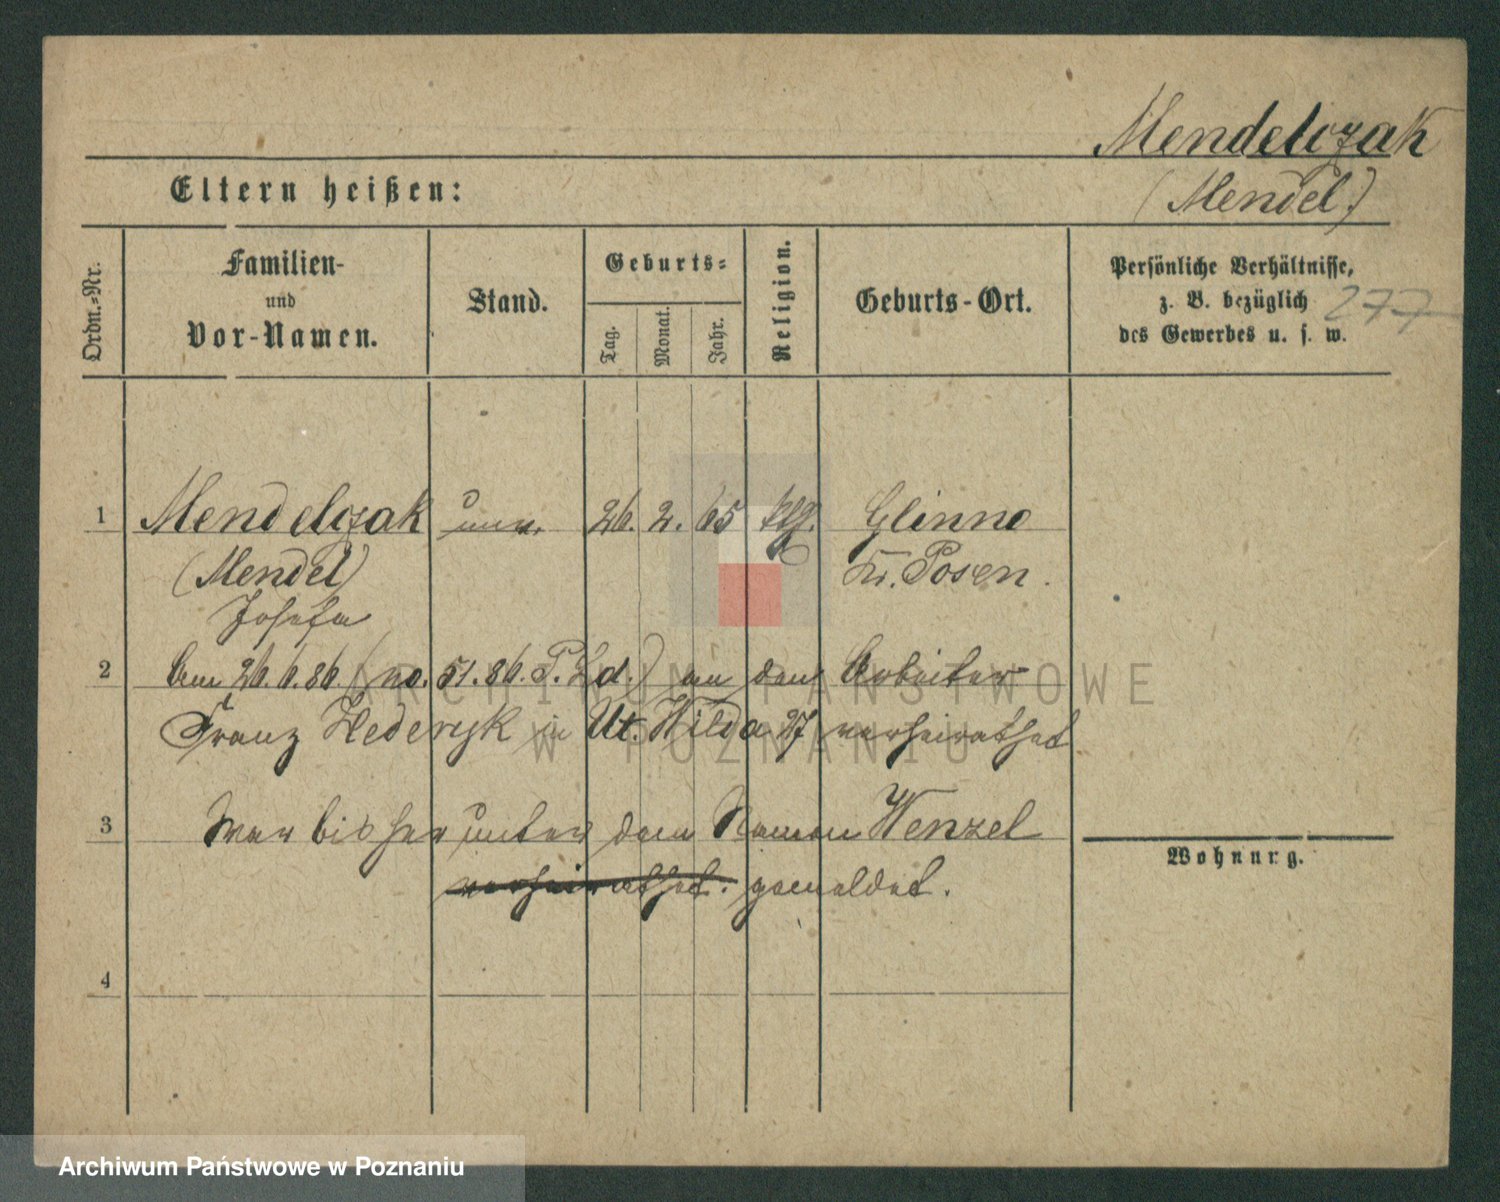 Mendelczak
Eltern heißen:
(Mendel)
Ordn.-Nr.
Familien-
und
Vor-Namen.
Stand.
Geburts-
Tag.
Monat.
Jahr.
Religion.
Geburts-Ort.
Persönliche Verhältnisse,
z. B. bezüglich
des Gewerbes u. s. w.
277
1 Mendelczak unv. 26. 2. 65 kth. Glinno
(Mendel) Kr. Posen.
Josefa
2 Am 26.6.86. (no. 51.86. P. Ld.) an den Arbeiter
Franz Hederyk in Ut. Wilda 27 verheirathet
3 War bisher unter dem Namen Wenzel
verheirathet. gemeldet.
Wohnung.
4
ARCHIWUM PAŃSTWOWE
W POZNANIU
Archiwum Państwowe w Poznaniu